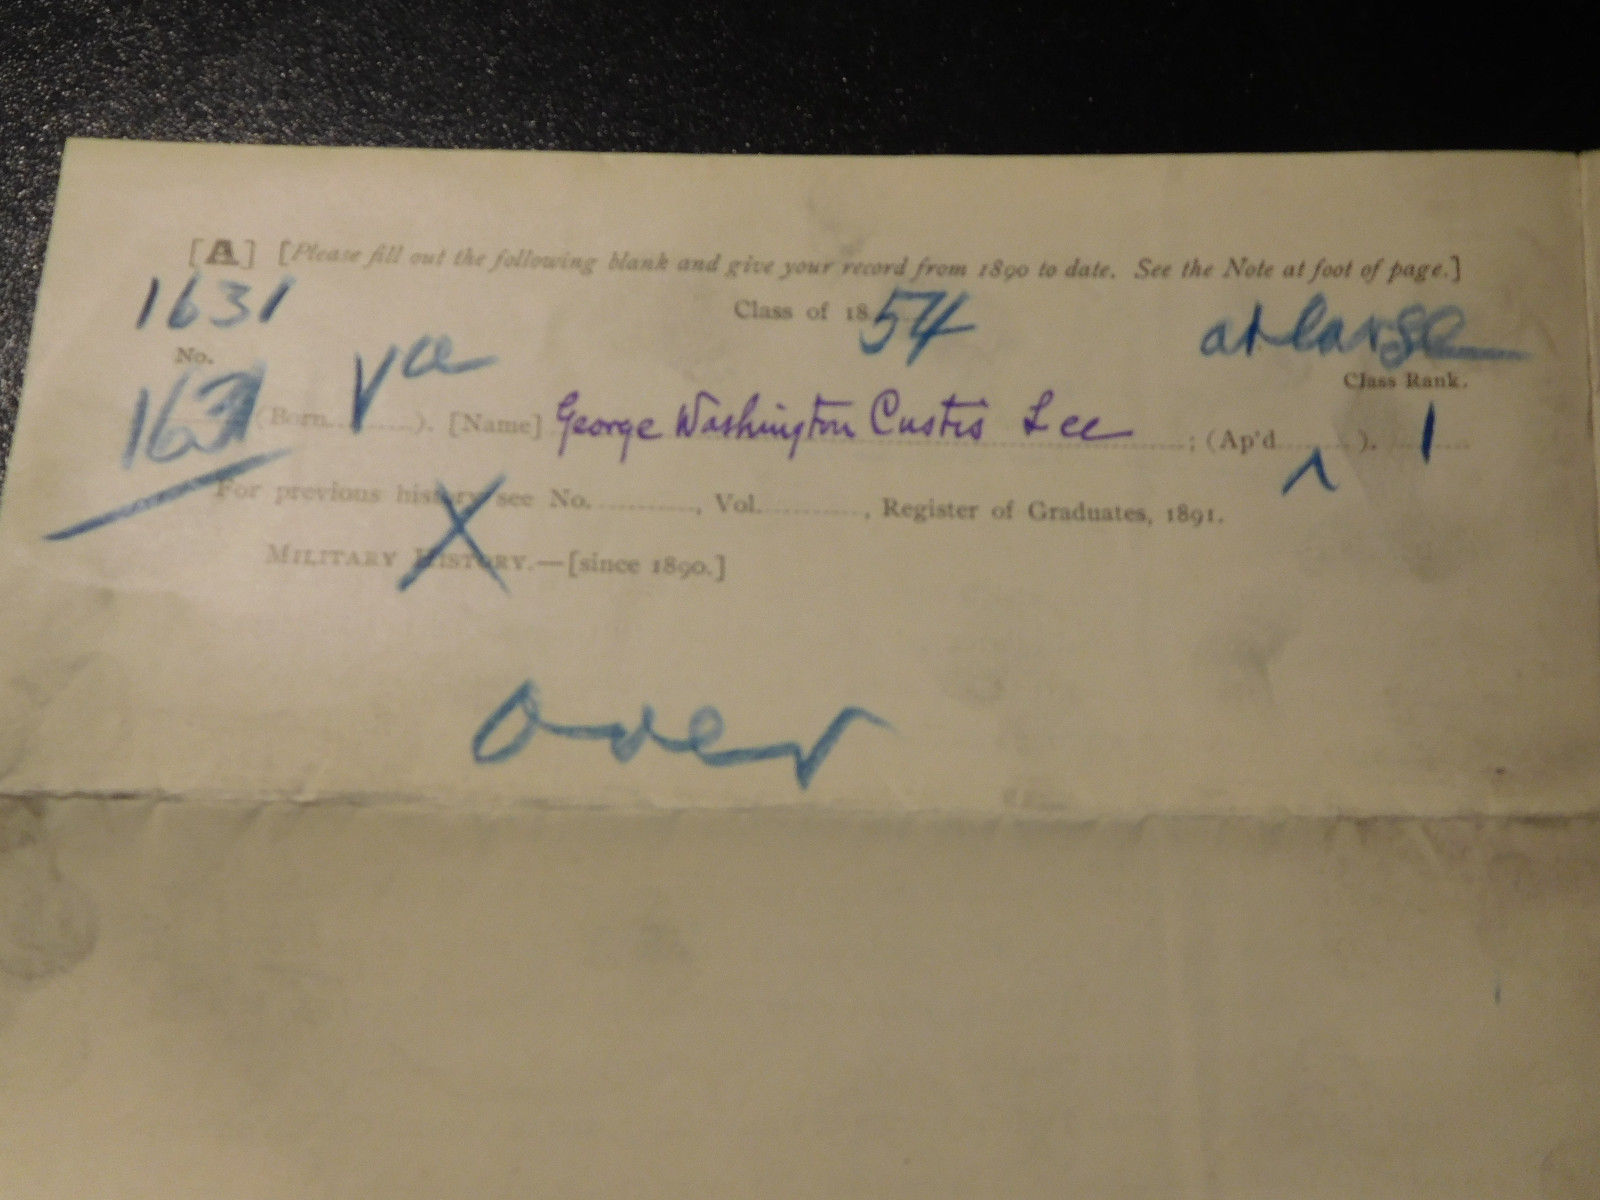 [A] [Please fill out the following blank and give your record from 1890 to date. See the Note at foot of page.]
1631
Class of 1854
at large
No.
Class Rank.
1631 (Born Va ). [Name] George Washington Custis Lee ; (Ap'd ^ ). 1
For previous history see No. , Vol. , Register of Graduates, 1891.
X
MILITARY HISTORY.—[since 1890.]
Over